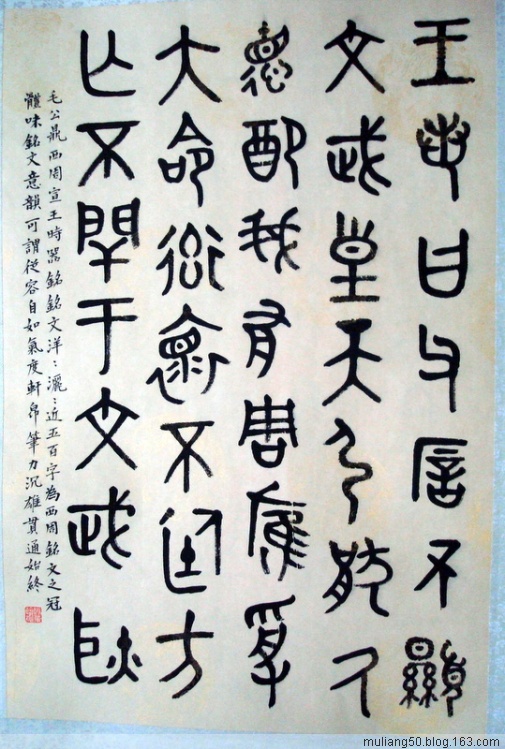 王若曰父厝不顯
文武皇天引厭厥
德配我有周膺受
大命率懷不廷方
亡不閈于文武耿
毛公鼎西周宣王時器銘銘文洋:灑:近五百字為西周銘文之冠
體味銘文意韻可謂從容自如氣度軒昂筆力沉雄貫通始終
muliang50.blog.163.com